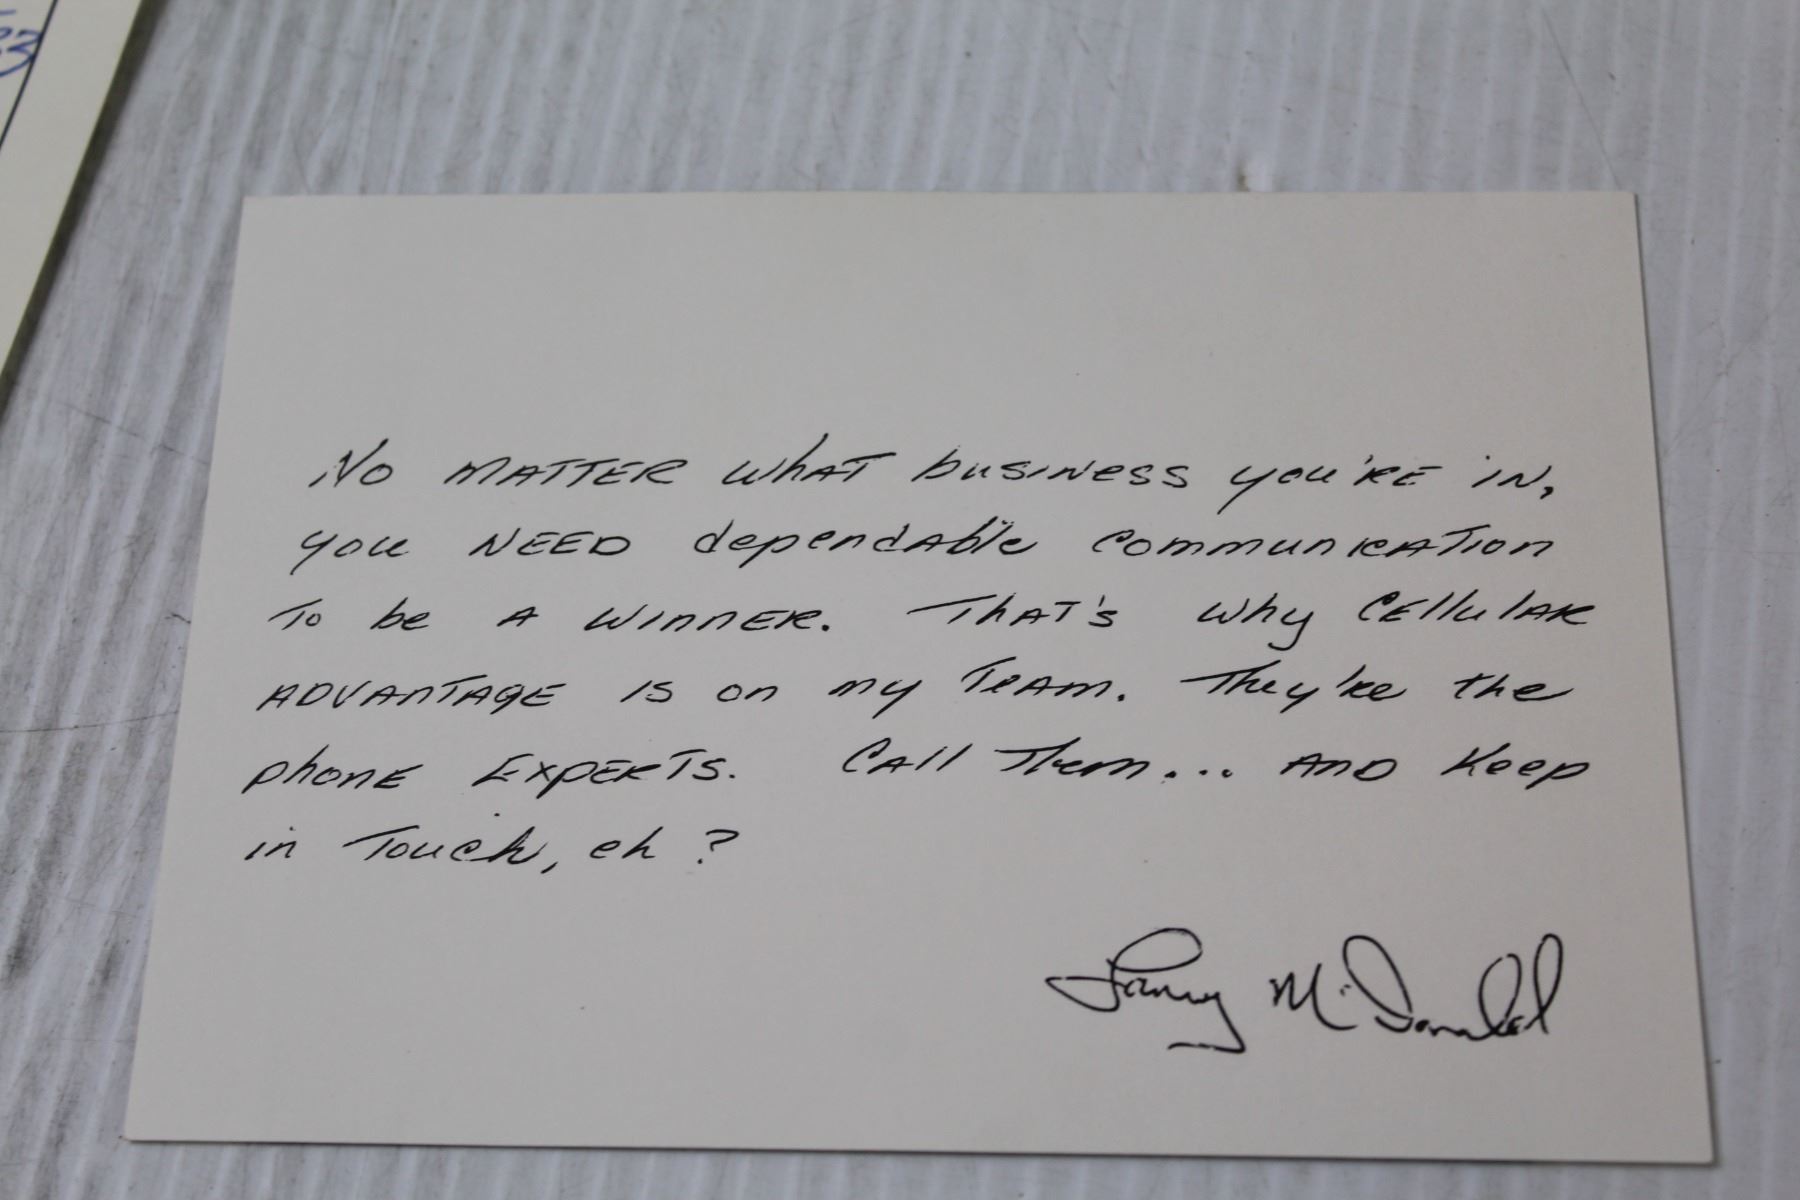 No matter what business you're in,
you need dependable communication
to be a winner. That's why Cellular
Advantage is on my team. They're the
phone experts. Call them... and keep
in touch, eh?
Lanny McDonald